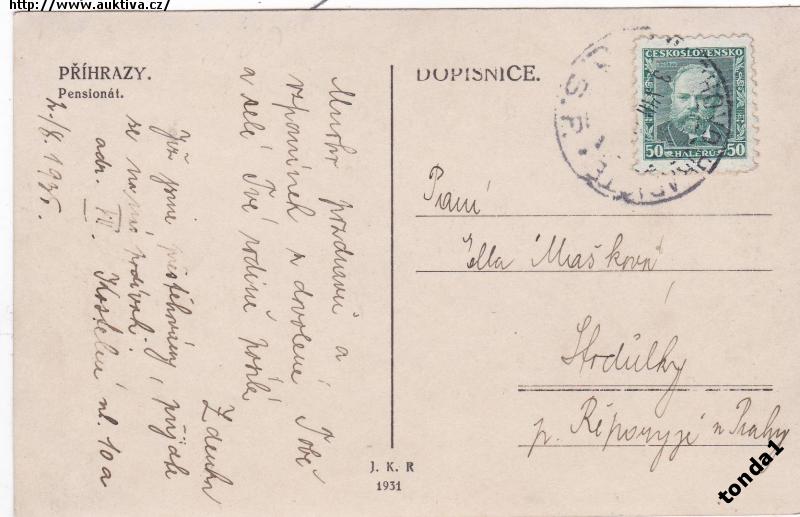 http://www.auktiva.cz/
PŘÍHRAZY.
Pensionát.
2./8. 1935.
Mnoho pozdravů a
vzpomínek z dovolené Tobě
a celé Tvé rodině posílá
Zdenka
Již jsme přestěhovány, přijďte
se na nás podívat.
adr. VII. Kostelní ul. 10a
DOPISNICE.
ČESKOSLOVENSKO
50 HALÉŘŮ 50
Č.S.R.
Paní
Ella Mašková
Stodůlky
p. Řeporyje u Prahy
J. K. R
1931
tonda1